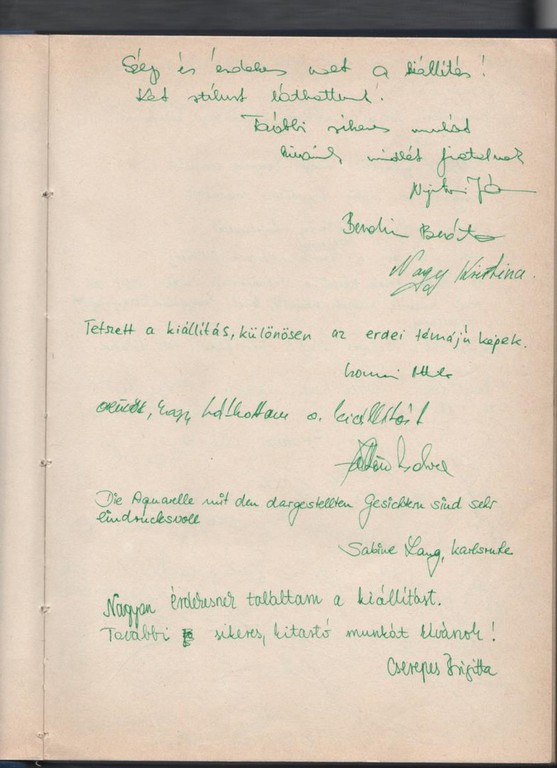 Szép és érdekes volt a kiállítás!
Két stílust láthattunk!
További sikeres munkát
kívánok mindkét fiatalnak
Nagy Krisztina
Tetszett a kiállítás, különösen az erdei témájú képek.
örülök, hogy láthattam a kiállítást
Die Aquarelle mit den dargestellten Gesichtern sind sehr
eindrucksvoll
Sabine Lang, Karlsruhe
Nagyon érdekesnek találtam a kiállítást.
További sikeres, kitartó munkát kívánok!
Cserepes Brigitta